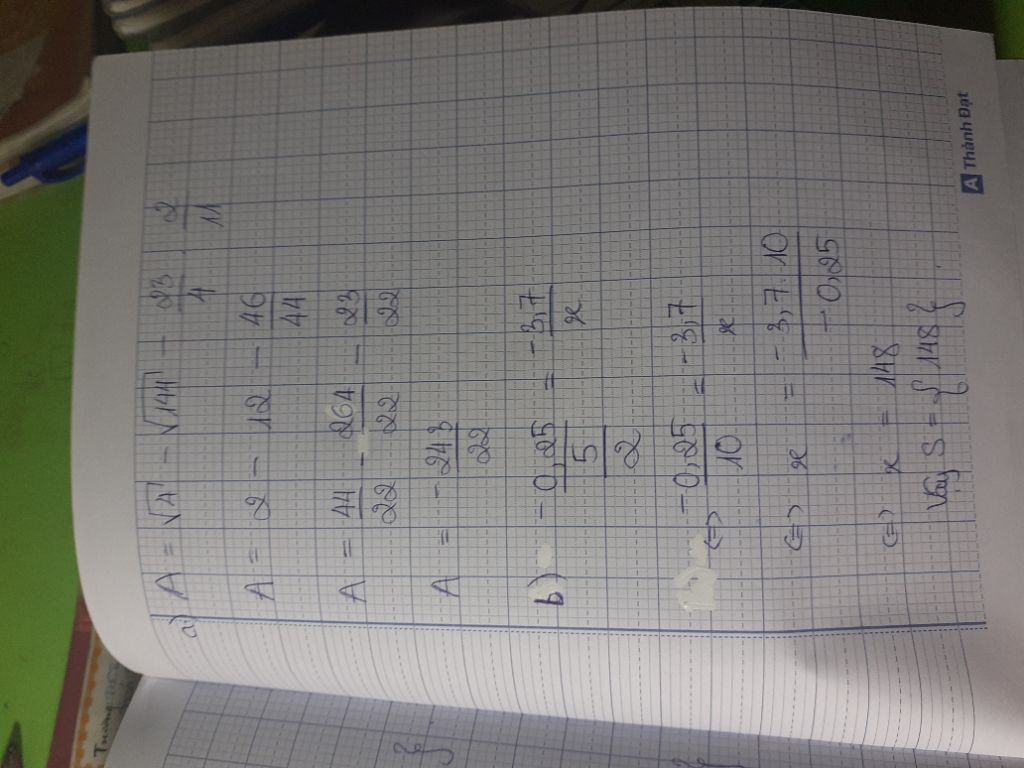 a) A = √4 - √144 - 23/4 . 2/11
A = 2 - 12 - 46/44
A = 44/22 - 264/22 - 23/22
A = -243/22
b) -0,25/5/2 = -3,7/x
<=> -0,25/10 = -3,7/x
<=> x = -3,7.10/-0,25
<=> x = 148
Vậy S = { 148 }.
A Thành Đạt